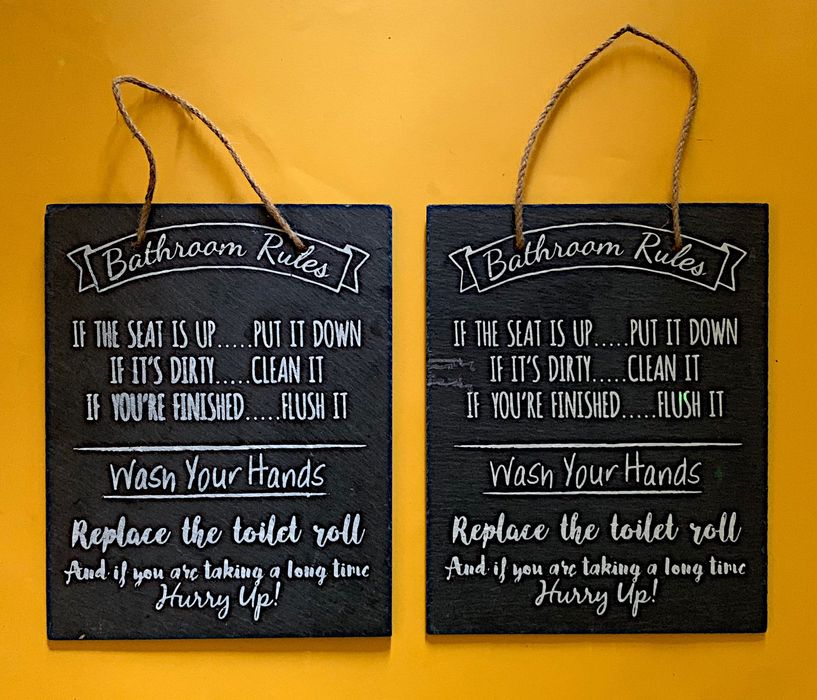 Bathroom Rules
IF THE SEAT IS UP.....PUT IT DOWN
IF IT'S DIRTY.....CLEAN IT
IF YOU'RE FINISHED.....FLUSH IT
Wash Your Hands
Replace the toilet roll
And if you are taking a long time
Hurry Up!
Bathroom Rules
IF THE SEAT IS UP.....PUT IT DOWN
IF IT'S DIRTY.....CLEAN IT
IF YOU'RE FINISHED.....FLUSH IT
Wash Your Hands
Replace the toilet roll
And if you are taking a long time
Hurry Up!